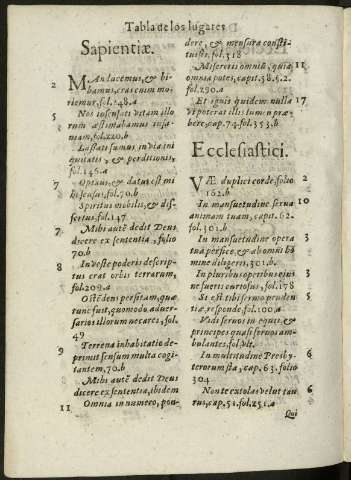 Tabla de los lugares
Sapientiæ.
MAnducemus, & bi-
2 bamus, cras enim mo-
riemur, fol. 248. a
5 Nos insensati vitam illo
rum æstimabamus insa-
niam, fol. 220. b
Lassati sumus in via ini
quitatis, & perditionis,
fol. 145. a
7 Optaui, & datus est mi
hi sensus, fol. 70. b
Spiritus mobilis, & dis-
sertus, fol. 147
7 Mihi autē dedit Deus
dicere ex sententia, folio
70. b
8 In veste poderis descrip-
tus erat orbis terrarum,
fol 209. a
Ostēdens persitum, quæ
tunc fuit, quomodo aduer-
sarios illorum necares, fol.
49
9 Terrena inhabitatio de-
primit sensum multa cogi-
tantem, 70. b
Mihi autē dedit Deus
dicere ex sententia, ibidem
11 Omnia in numero, pon-
dere, & mensura consti-
tuisti. fol. 318
Misereris omniū, quia 11
omnia potes, capit. 58. 5. 2.
fol. 290. a
Et ignis quidem nulla 17
vi poterat illis lumen præ
bere, cap. 74. fol. 353. b
Ecclesiastici.
VÆ duplici corde, folio 2
162. b
In mansuetudine serua 10
animam tuam, capit. 62.
fol. 301. b
In mansuetudine opera 3
tua perfice, & ab omni ho
mine diligeris, 301. b.
In pluribus operibus eius 3
ne fueris curiosus, fol. 178
Si est tibi sermo pruden 5
tiæ, responde, fol. 100. a
Vidi seruos in equis, &
principes quasi seruos am-
bulantes, fol. vlt.
In multitudine Presby- 6
terorum sta, cap, 63. folio
304
Non te extolas velut tau 6
rus, cap. 51. fol. 251. a
Qui